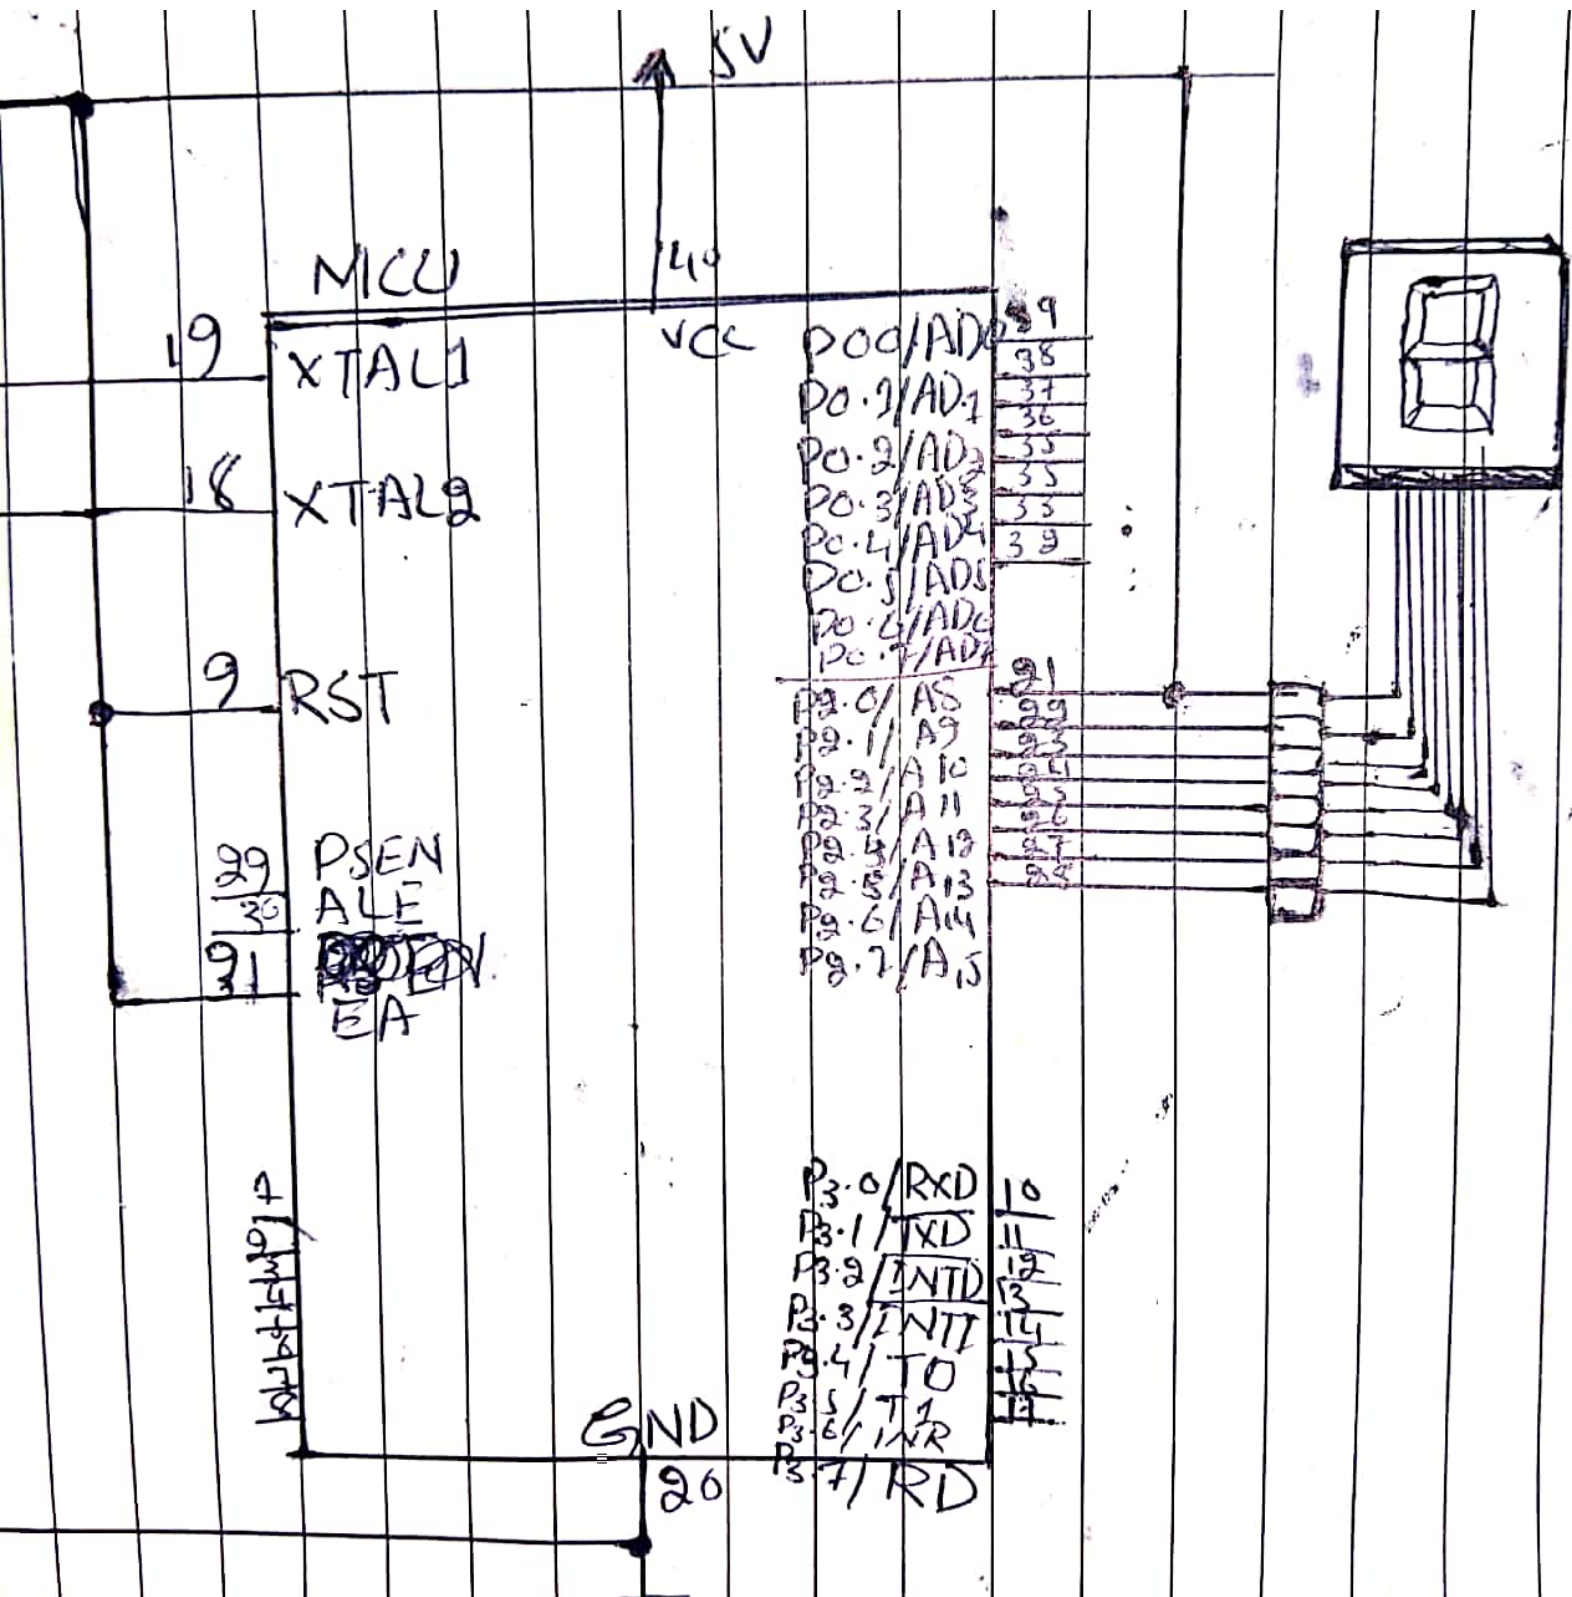 5V
MCU
40
VCC
19
XTAL1
18
XTAL2
9
RST
29
PSEN
30
ALE
31
EA
P00/AD0
39
P0.1/AD1
38
P0.2/AD2
37
P0.3/AD3
36
P0.4/AD4
35
P0.5/AD5
35
P0.6/AD6
33
P0.7/AD7
32
P2.0/A8
21
P2.1/A9
22
P2.2/A10
23
P2.3/A11
24
P2.4/A12
25
P2.5/A13
26
P2.6/A14
27
P2.7/A15
28
P3.0/RXD
10
P3.1/TXD
11
P3.2/INTD
12
P3.3/INTI
13
P3.4/T0
14
P3.5/T1
15
P3.6/INR
16
P3.7/RD
17
GND
20